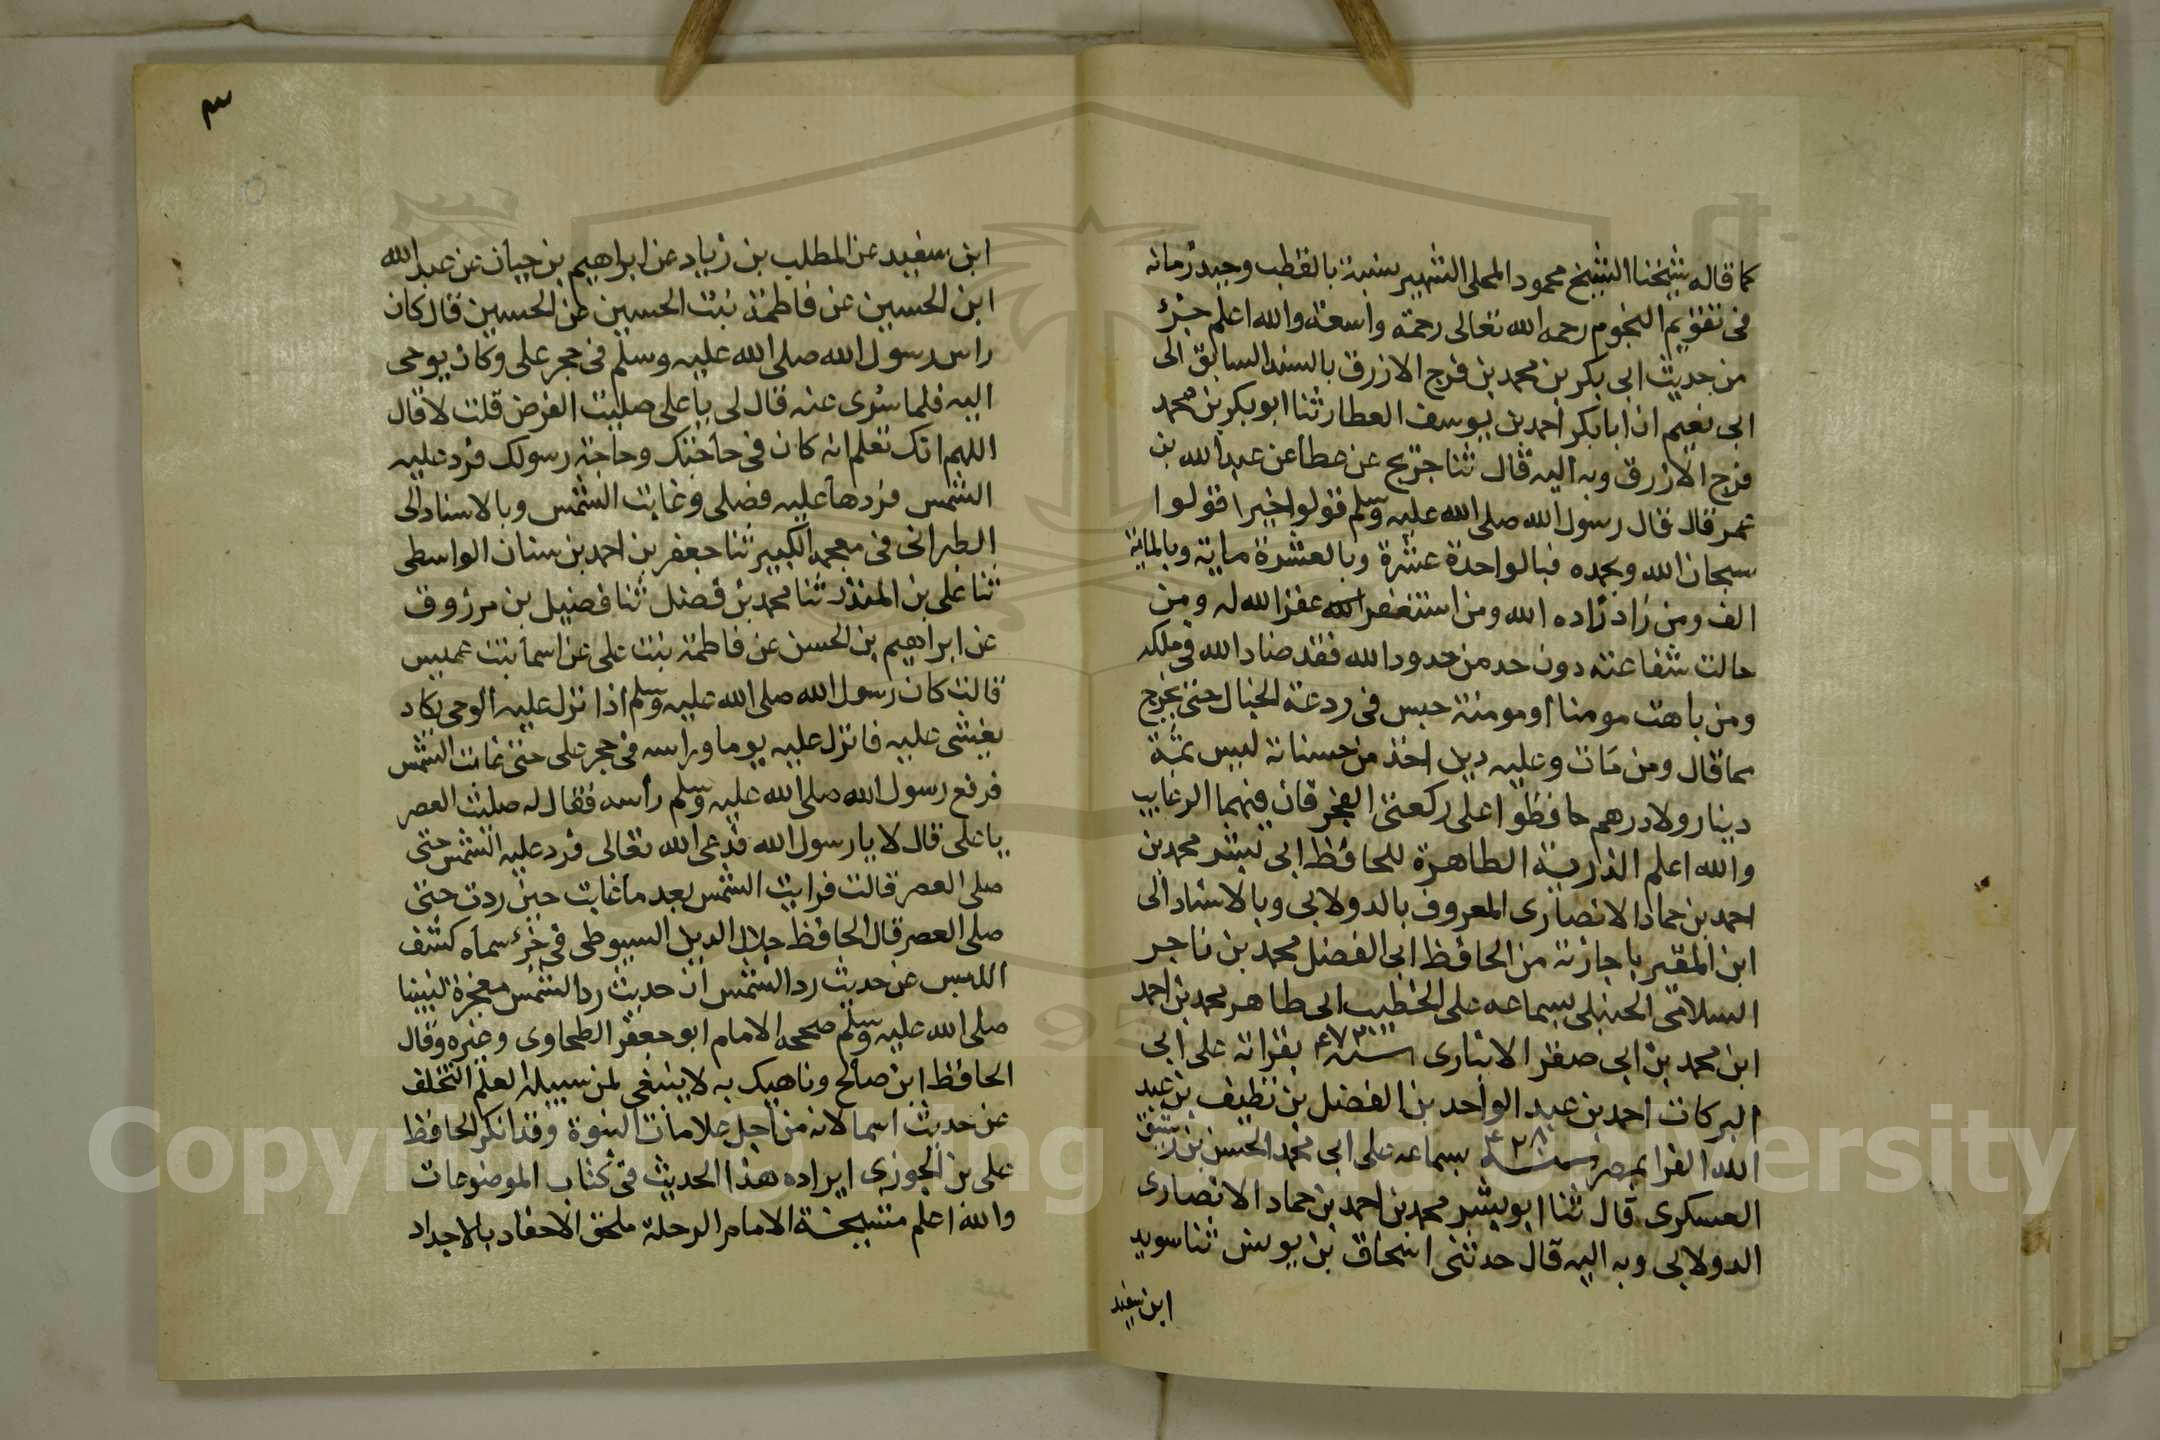 كما قاله شيخنا الشيخ محمود المحلى الشهير نسبة بالقطب وحيد زمانه
فى تقويم النجوم رحمه الله تعالى رحمة واسعة والله اعلم جزؤ
من حديث ابى بكر بن محمد بن فرج الازرق بالسند السابق الى
ابى نعيم ان ابا بكر احمد بن يوسف العطار ثنا ابو بكر بن محمد
فرج الازرق وبه اليه قال ثنا جريج عن عطا عن عبد الله بن
عمر قال قال رسول الله صلى الله عليه وسلم قولوا خيرا قولوا
سبحان الله وبحمده فبالواحدة عشرة وبالعشرة ماية وبالماية
الف ومن زاد زاده الله ومن استغفر الله غفر الله له ومن
حالت شفاعته دون حد من حدود الله فقد ضاد الله فى ملكه
ومن باهت مومنا او مومنة حبس فى ردغة الخبال حتى يخرج
مما قال ومن مات وعليه دين اخذ من حسناته ليس ثمة
دينار ولا درهم حافظوا على ركعتى الفجر فان فيهما الرغايب
والله اعلم الذرية الطاهرة للحافظ ابى بشر محمد بن
احمد بن حماد الانصارى المعروف بالدولابى وبالاسناد الى
ابن المقير باجازته من الحافظ ابى الفضل محمد بن ناصر
السلامى الحنبلى بسماعه على الخطيب ابى طاهر محمد بن احمد
ابن محمد بن ابى صقر الانبارى سنة ٤٧٣ بقراته على ابى
البركات احمد بن عبد الواحد بن الفضل بن نظيف بن عبد
الله الفرا بمصر سنة ٤٢٨ بسماعه على ابى محمد الحسن بن رشيق
العسكرى قال ثنا ابو بشر محمد بن احمد بن حماد الانصارى
الدولابى وبه اليه قال حدثنى اسحاق بن يونس ثنا سويد
ابن سعيد
٣
ابن سعيد عن المطلب بن زياد عن ابراهيم بن حيان عن عبد الله
ابن الحسين عن فاطمة بنت الحسين عن الحسين قال كان
راس رسول الله صلى الله عليه وسلم فى حجر على وكان يوحى
اليه فلما سرى عنه قال لى يا على صليت الفرض قلت لا قال
اللهم انك تعلم انه كان فى حاجتك وحاجة رسولك فرد عليه
الشمس فردها عليه فصلى وغابت الشمس وبالاسناد الى
الطبرانى فى معجمه الكبير ثنا جعفر بن احمد بن سنان الواسطى
ثنا على بن المنذر ثنا محمد بن فضل ثنا فضيل بن مرزوق
عن ابراهيم بن الحسن عن فاطمة بنت على عن اسما بنت عميس
قالت كان رسول الله صلى الله عليه وسلم اذا نزل عليه الوحى يكاد
يغشى عليه فانزل عليه يوما وراسه فى حجر على حتى غابت الشمس
فرفع رسول الله صلى الله عليه وسلم رأسه فقال له صليت العصر
يا على قال لا يا رسول الله فدعى الله تعالى فرد عليه الشمس حتى
صلى العصر قالت فرايت الشمس بعد ما غابت حين ردت حتى
صلى العصر قال الحافظ جلال الدين السيوطى فى جزء سماه كشف
اللبس عن حديث رد الشمس ان حديث رد الشمس معجزة لنبينا
صلى الله عليه وسلم صححه الامام ابو جعفر الطحاوى وغيره وقال
الحافظ ابن صالح وناهيك به لا ينبغى لمن سبيله العلم التخلف
عن حديث اسما لانه من اجل علامات النبوة وقد انكر الحافظ
على بن الجوزى ايراده هذا الحديث فى كتاب الموضوعات
والله اعلم مشيخة الامام الرحلة ملحق الاحفاد بالاجداد
Copyright © King Saud University